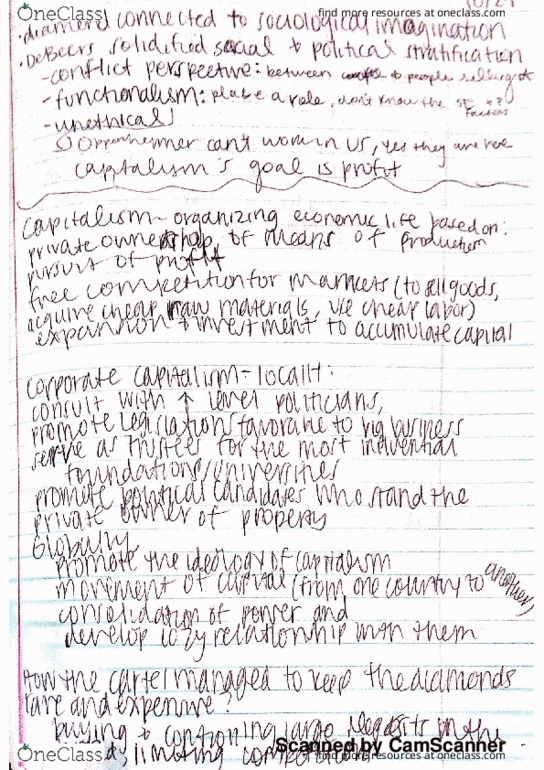 OneClass
find more resources at oneclass.com
10/27
·diamond connected to sociological imagination
·DeBeers solidified social & political stratification
-conflict perspective: between to people selling it
-functionalism: place a role, don't know the
Factors
-unethical
Oppenheimer can't work in US, yes they are here
capitalism's goal is profit
Capitalism- organizing economic life based on:
private ownership of means of production
pursuit of profit
free competition for markets (to sell goods,
acquire cheap raw materials, use cheap labor)
expansion + investment to accumulate capital
corporate capitalism- locally:
consult with ↑ level politicians,
promote legislations favorable to big business
serve as trustees for the most influential
foundations/universities
promote political candidates who stand the
private owner of property
Globally
promote the ideology of capitalism
movement of capital (from one country to another)
consolidation of power and
develop cozy relationship with them
How the cartel managed to keep the diamonds
rare and expensive?
buying & controlling large in the
limiting
Scanned by CamScanner
OneClass
find more resources at oneclass.com